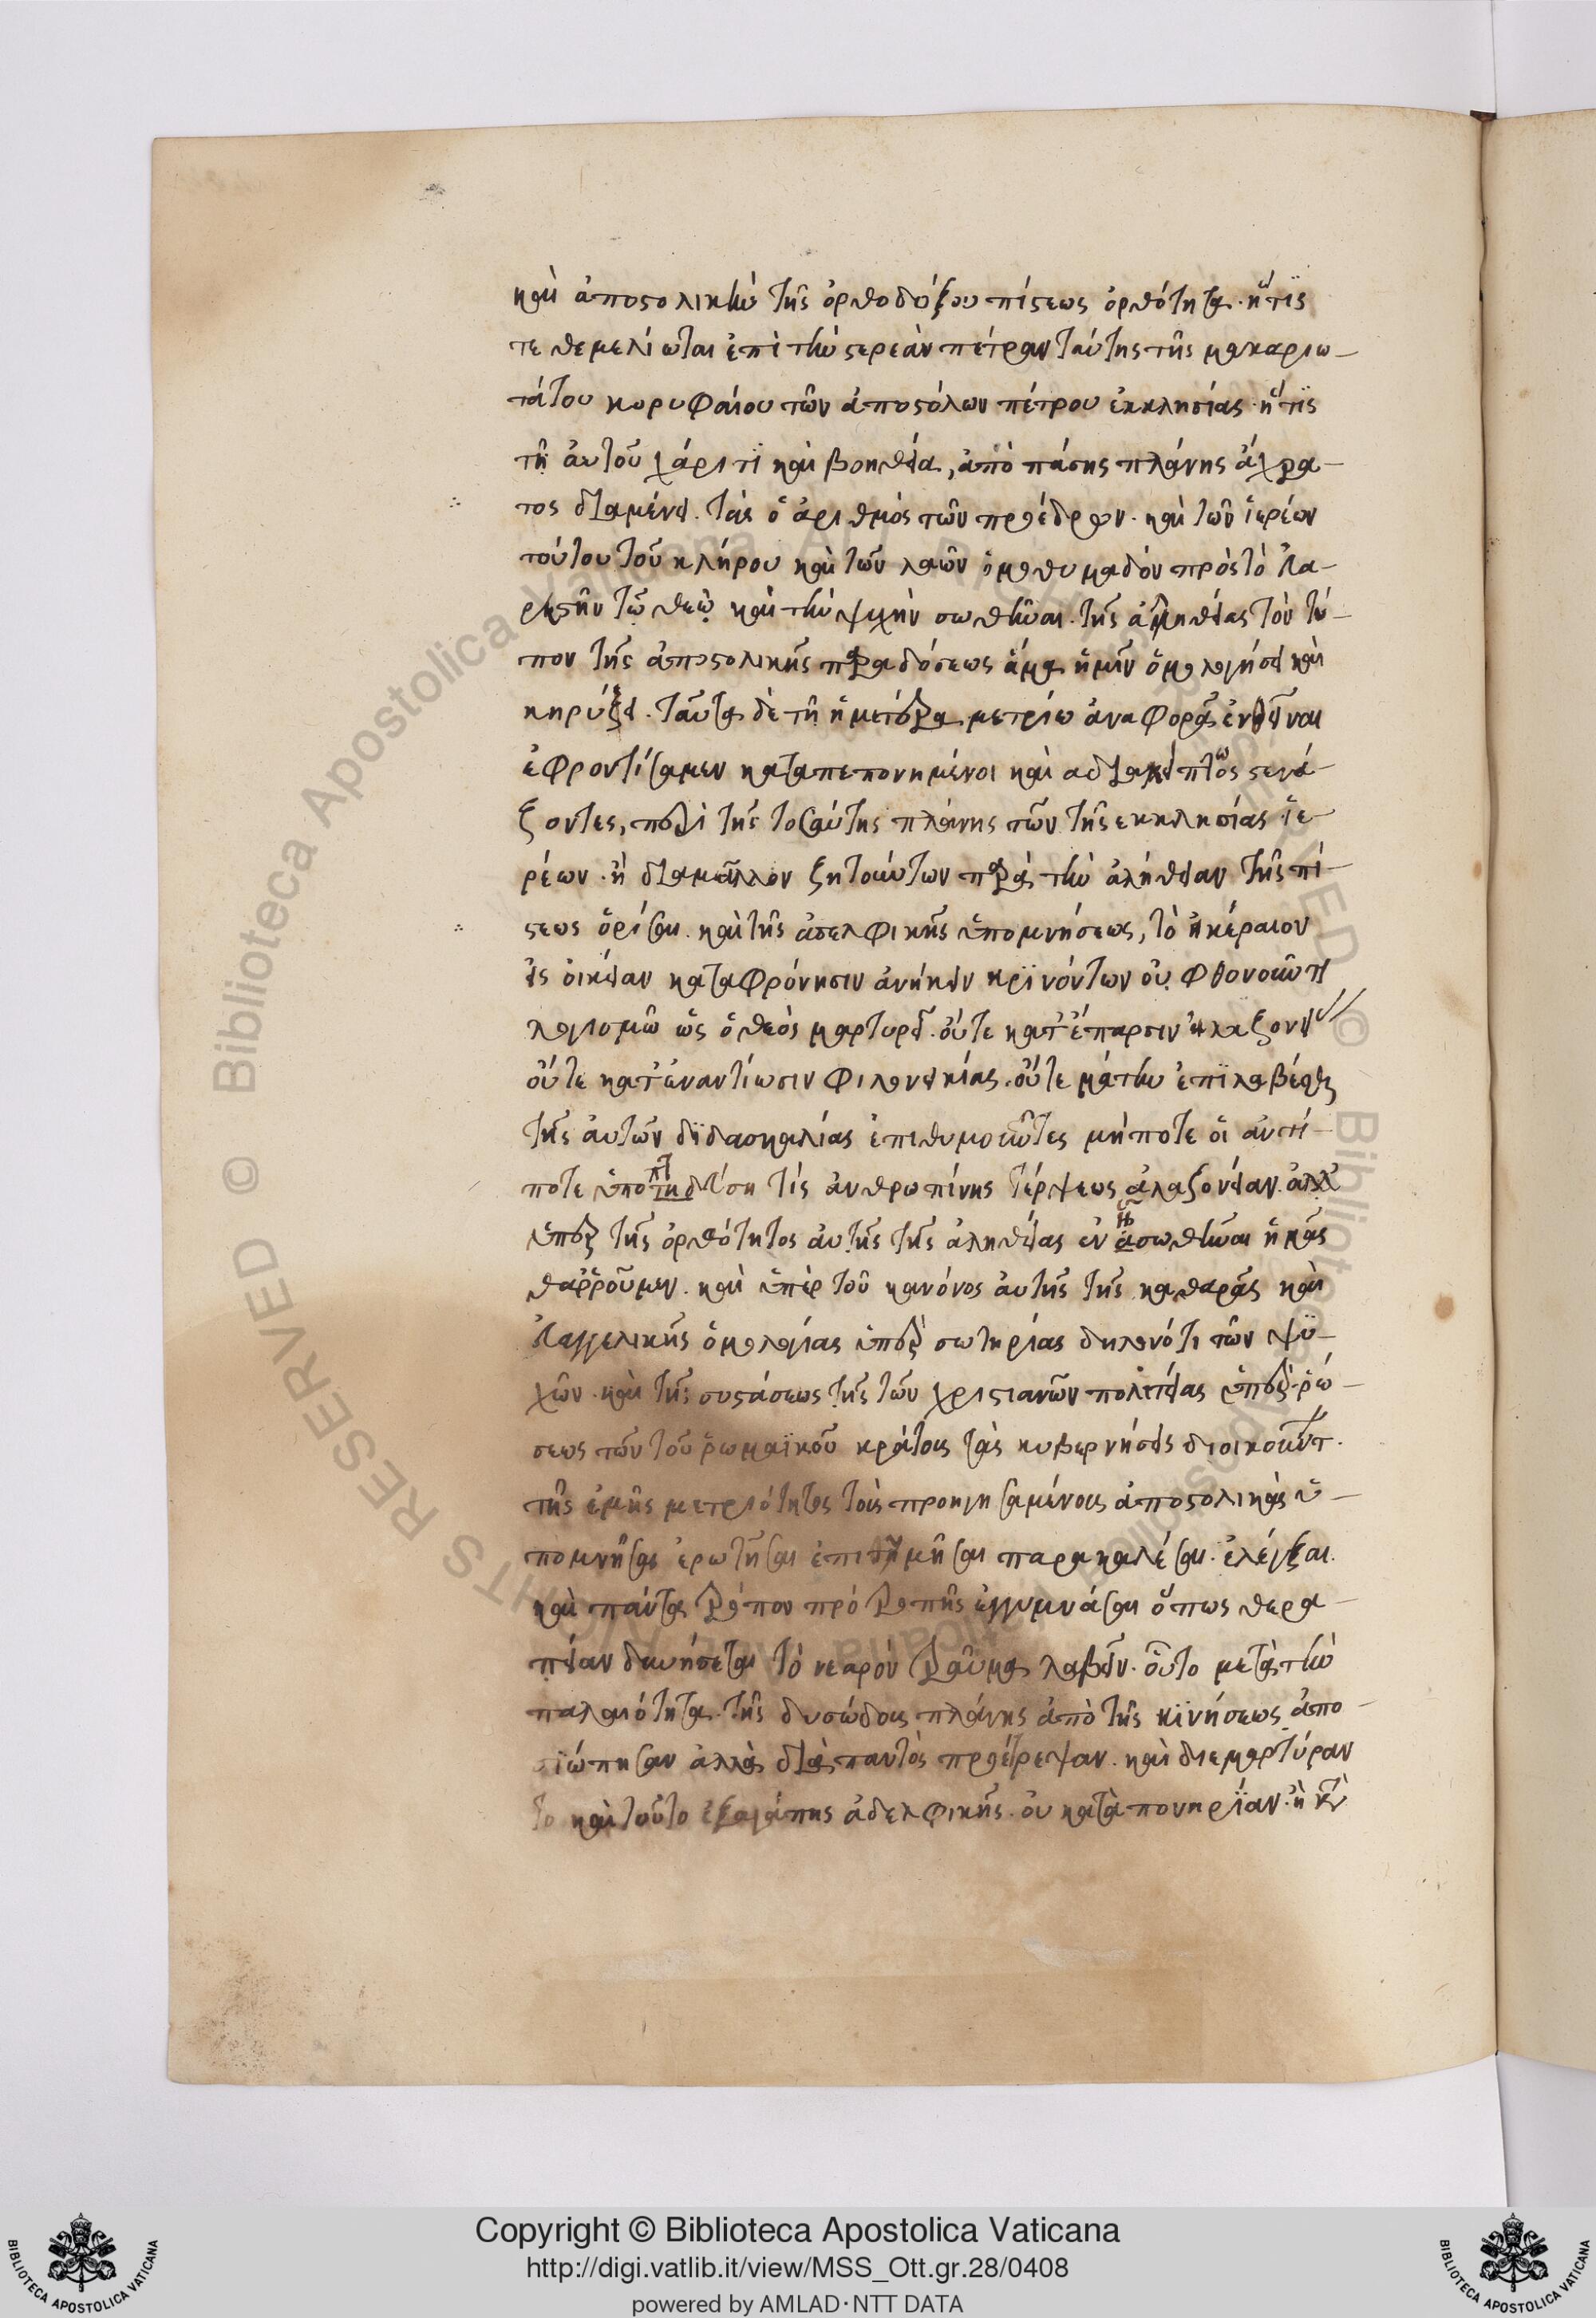 καὶ ἀποστολικὴν τῆς ὀρθοδόξου πίστεως ὀρθότητα· ἥτις
τε θεμελίωται ἐπὶ τὴν στερεὰν πέτραν ταύτης τῆς μακαριω-
τάτου κορυφαίου τῶν ἀποστόλων πέτρου ἐκκλησίας· ἥτις
τῇ αὐτοῦ χάριτι καὶ βοηθείᾳ, ἀπὸ πάσης πλάνης ἄχρα-
τος διαμένει. πᾶς ὁ ἀριθμὸς τῶν προέδρων· καὶ τῶν ἱερέων
τούτου τοῦ κλήρου καὶ τῶν λαῶν ὁμοθυμαδὸν πρὸς τὸ εὐα-
ρεστῆν τῷ θεῷ καὶ τὴν ψυχὴν σωθῆναι. τῆς ἀληθείας τὸν τύ-
πον τῆς ἀποστολικῆς παραδόσεως ἅμα ἡμῖν ὁμολογήσει καὶ
κηρύξει. ταῦτα δὲ τῇ ἡμετέρᾳ μετρίῳ ἀναφορᾷ ἐνθεῖναι
ἐφροντίσαμεν καταπεπονημένοι καὶ αδιαλείπτως στενά-
ζοντες, περὶ τῆς τοσαύτης πλάνης τῶν τῆς εκκλησίας ἱε-
ρέων· ἢ διαμᾶλλον ζητούντων παρὰ τὴν ἀλήθειαν τῆς πί-
στεως ὁρίσαι. καὶ τῆς ἀδελφικῆς ὑπομνήσεως, τὸ ἀκέραιον
εἰς οἰκείαν καταφρόνησιν ἀνήκειν κρινόντων οὐ φθονοῦντι
λογισμῷ ὡς ὁ θεὸς μαρτυρεῖ. οὔτε κατ' ἔπαρσιν ἀλαζονεί
οὔτε κατ' ἐναντίωσιν φιλονεικίας. οὔτε μάτην ἐπιλαβέσθαι
τῆς αὐτῶν διδασκαλίας ἐπιθυμοῦντες μήποτε οἱ αντί-
ποτε ὑποπτηδεύση τίς ἀνθρωπίνης τέρψεως ἀλαζονείαν. ἀλλ'
ὑπὲρ τῆς ὀρθότητος αὐτῆς τῆς ἀληθείας ἐν ᾗ σωθῆναι ἡμᾶς
θαῤῥοῦμεν. καὶ ὑπὲρ τοῦ κανόνος αὐτῆς τῆς καθαρᾶς καὶ
εὐαγγελικῆς ὁμολογίας ὑπὲρ σωτηρίας δηλονότι τῶν ψυ-
χῶν· καὶ τῆς συστάσεως τῆς τῶν χριστιανῶν πολιτείας ὑπὲρ ῥώ-
σεως τῶν τοῦ ῥωμαϊκοῦ κράτους τὰς κυβερνήσεις διοικούντ.
τῆς ἐμῆς μετριότητος τοὺς προηγησαμένους ἀποστολικὰς ὑ-
πομνῆσαι ἐρωτῆσαι ἐπιτιμῆσαι παρακαλέσαι· ἐλέγξαι.
καὶ πάντα τρόπον πρὸ τροπῆς ἐγγυμνάσαι ὅπως θερα-
πείαν δυνήσεται τὸ νεαρὸν τραῦμα λαβεῖν. οὗτο μετὰ τὴν
παλαιότητα τῆς δυσώδους πλάνης ἀπὸ τῆς κινήσεως ἀπο
σιώπησαν ἀλλὰ διὰ παντὸς προέτρεψαν. καὶ διεμαρτύραν
το καὶ τοῦτο ἐξ ἀγάπης ἀδελφικῆς· οὐ κατὰ πονηρίαν· ἢ κτ
Copyright © Biblioteca Apostolica Vaticana
http://digi.vatlib.it/view/MSS_Ott.gr.28/0408
powered by AMLAD·NTT DATA